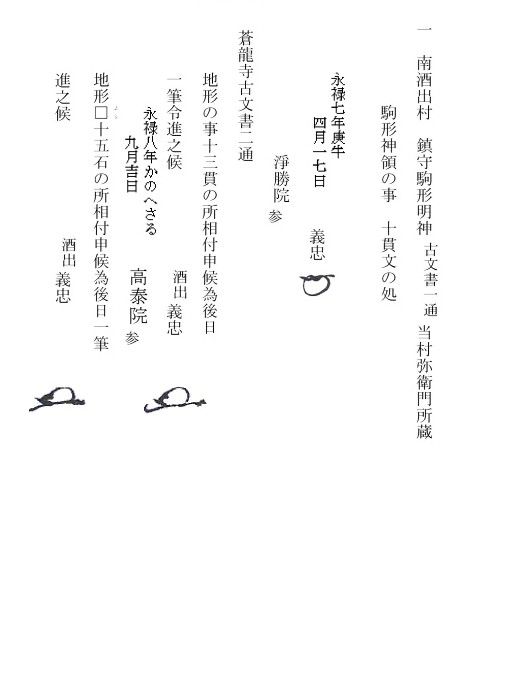 一　南酒出村　鎮守駒形明神　古文書一通　当村弥衛門所蔵
駒形神領の事　十貫文の処
永禄七年庚午
四月一七日
義忠
淨勝院　参
蒼龍寺古文書二通
地形の事十三貫の所相付申候為後日
一筆令進之候　酒出　義忠
永禄八年かのへさる
九月吉日
高泰院　参
地形□十五石の所相付申候為後日一筆
進之候　酒出　義忠